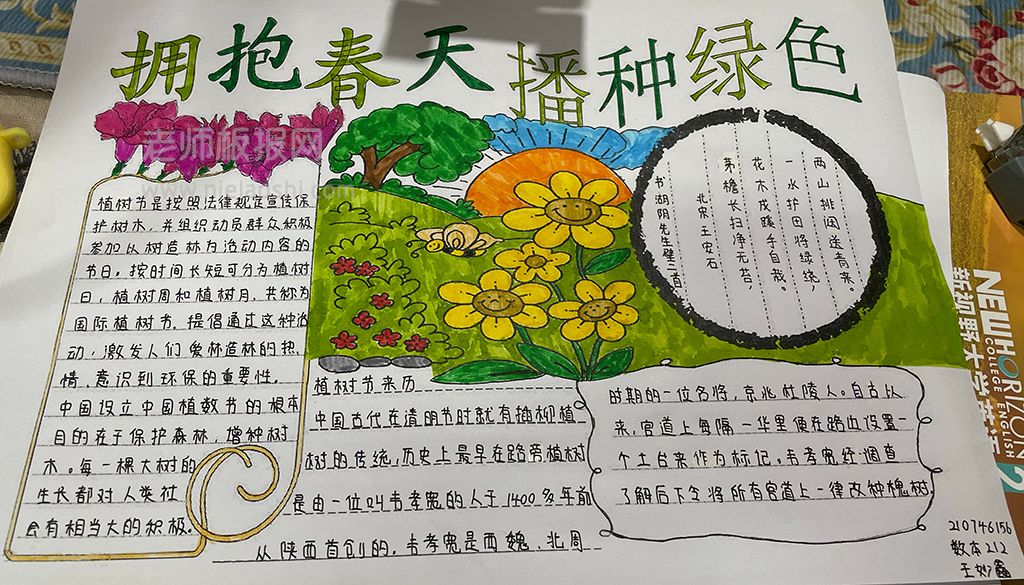 拥抱春天播种绿色
老师板报网
植树节是按照法律规定宣传保
护树木，并组织动员群众积极
参加以树造林为活动内容的
节日。按时间长短可分为植树
日，植树周和植树月，共称为
国际植树节。提倡通过这种活
动，激发人们爱林造林的热
情、意识到环保的重要性。
中国设立中国植数节的根本
目的在于保护森林，增种树
木。每一棵大树的
生长都对人类社
会有相当大的积极。
书湖阴先生壁二首
北宋 王安石
茅檐长扫净无苔，
花木成蹊手自栽。
一水护田将绿绕，
两山排闼送青来。
植树节来历
中国古代在清明节时就有插柳植
树的传统，历史上最早在路旁植树
是由一位叫韦孝宽的人于1400多年前
从陕西首创的。韦孝宽是西魏、北周
时期的一位名将，京兆杜陵人。自古以
来，官道上每隔一华里便在路边设置一
个土台来作为标记。韦孝宽经调查
了解后下令将所有官道上一律改种槐树。
210746156
数本212
NEW HORIZON
COLLEGE ENGLISH
新视野大学英语
2